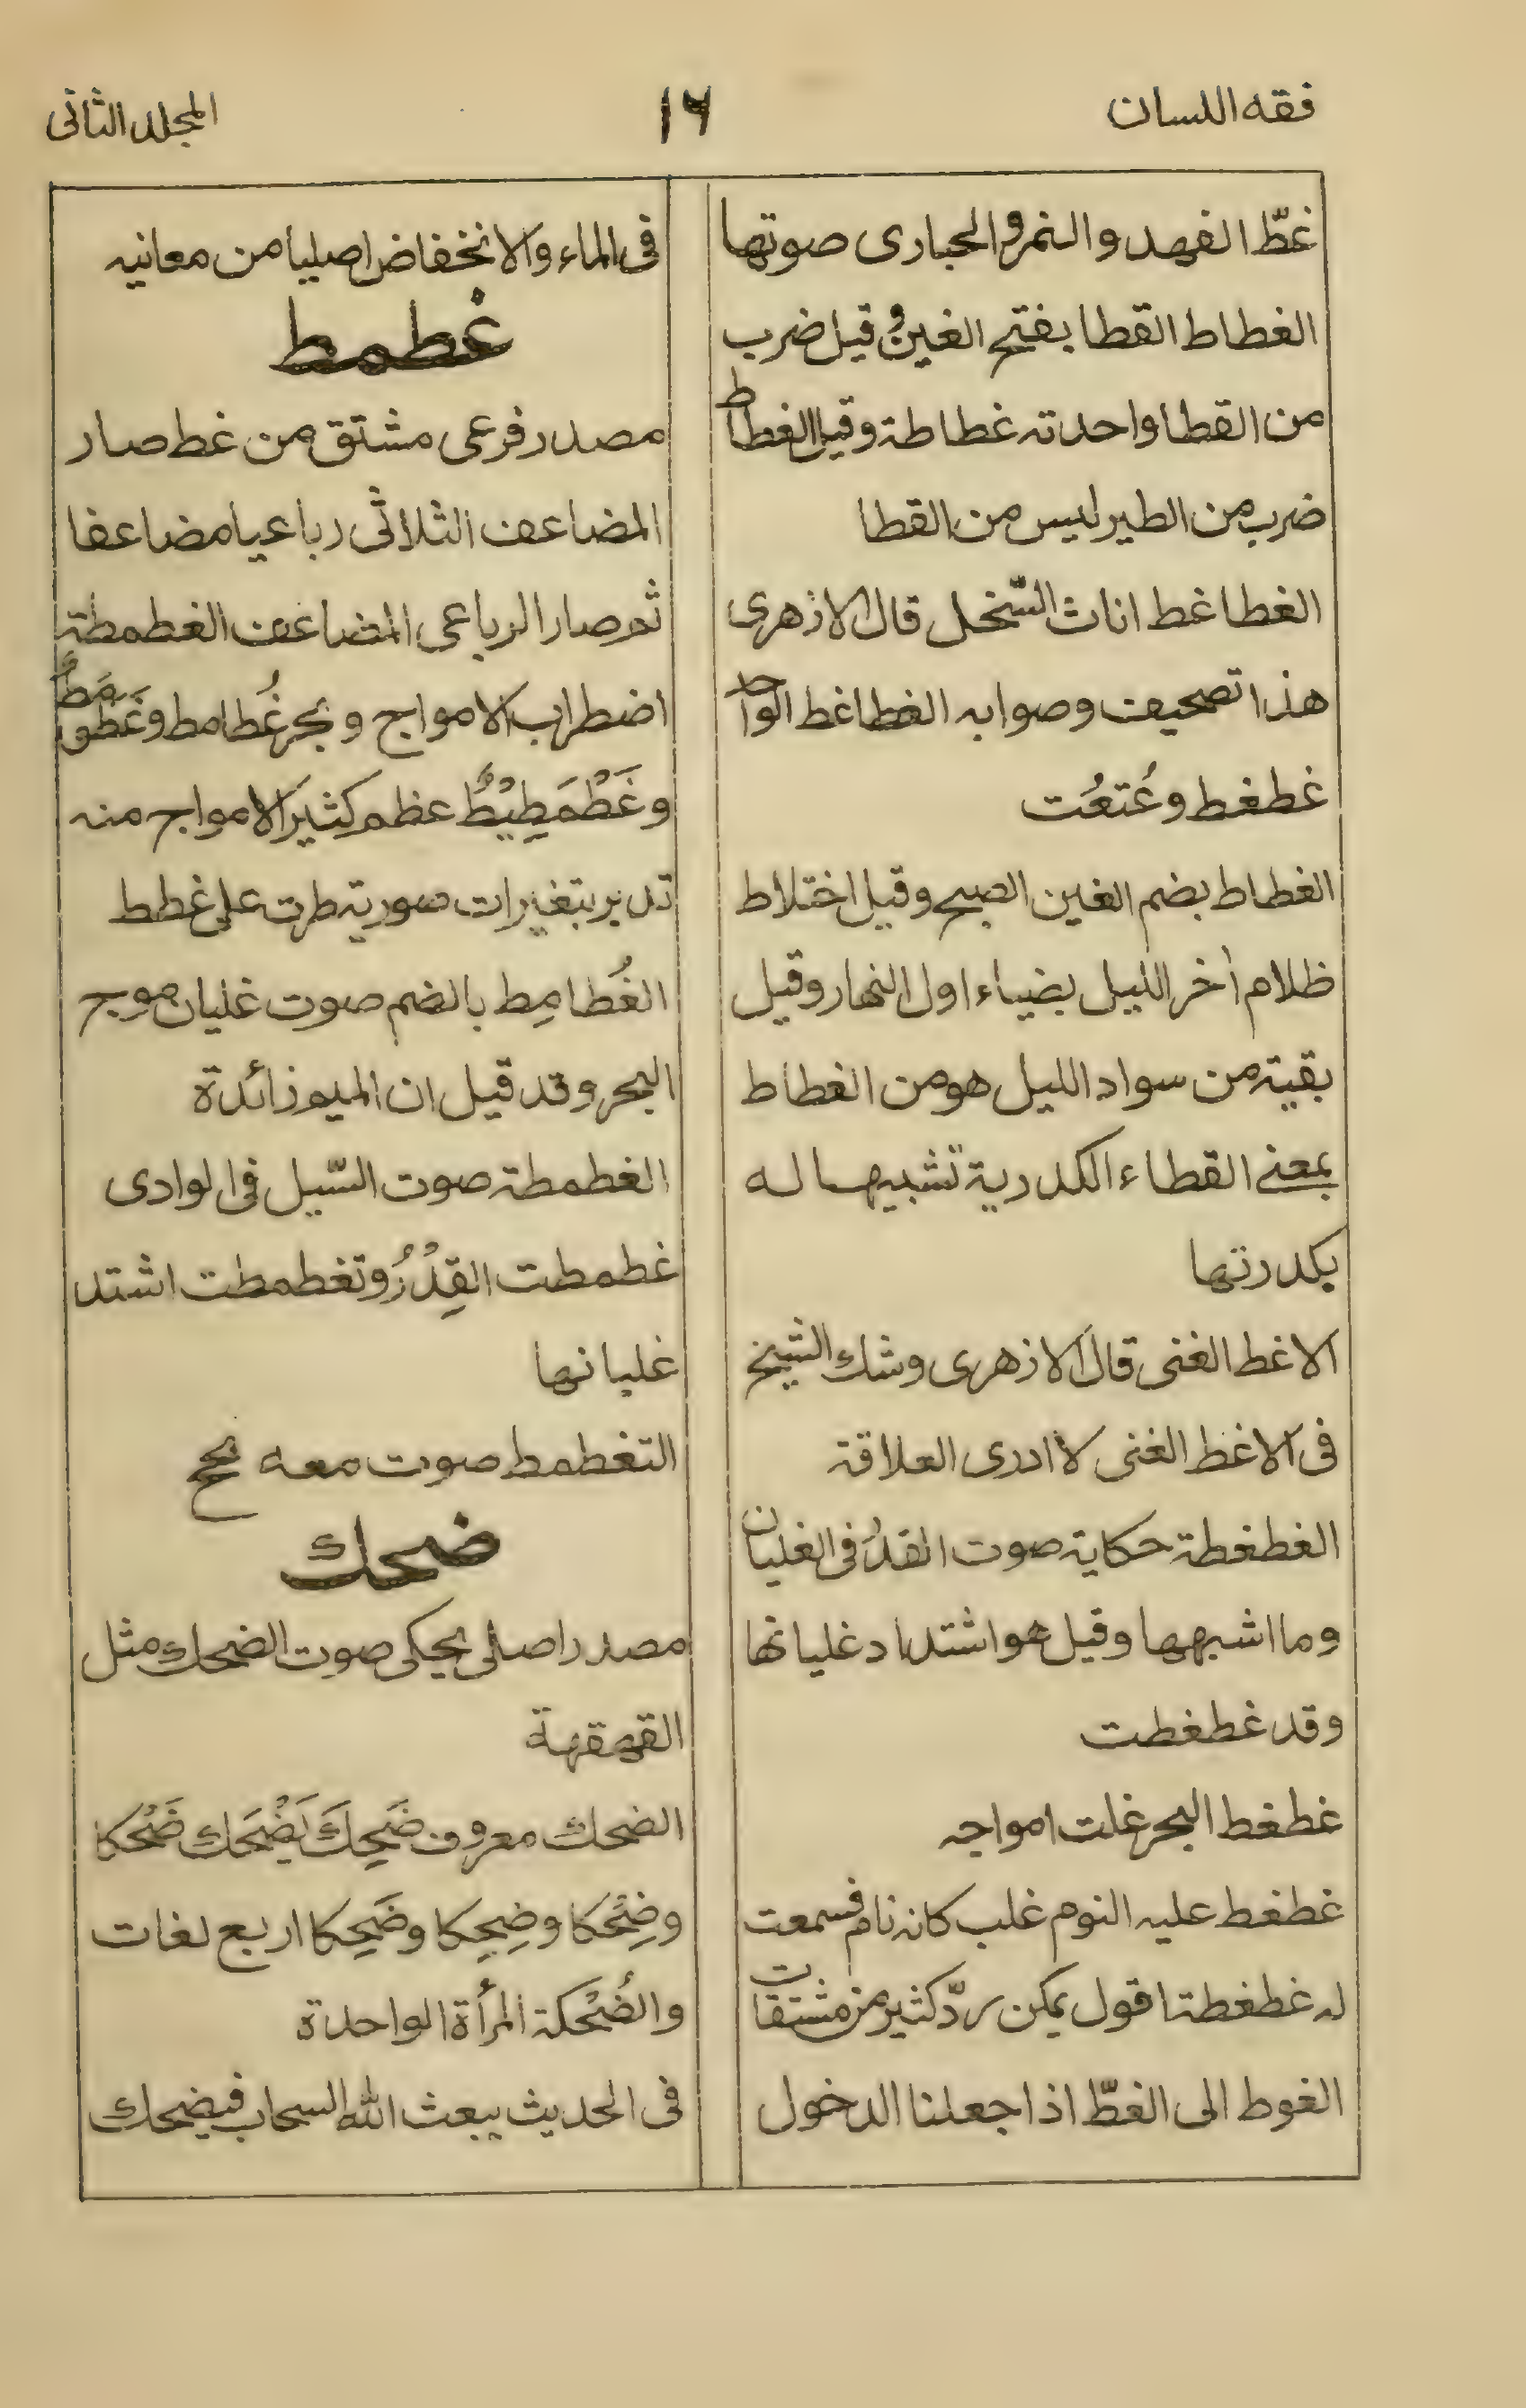 فقه اللسان
١٦
المجلد الثانی
غطّ الفهد والنمر والحباری صوتها
الغطاط القطا بفتح الغین وقیل ضرب
من القطا واحدته غطاطة وقیل الغطاط
ضرب من الطیر لیس من القطا
الغطاغط اناث السّخل قال الازهری
هذا تصحیف وصوابه الغطاغط الواحد
غطغط وعُتعُت
الغطاط بضم الغین الصبح وقیل اختلاط
ظلام أخر اللیل بضیاء اول النهار وقیل
بقیة من سواد اللیل هو من الغطاط
بمعنی القطاء الکدریة تشبیها له
بکدرتها
الاغط الغنی قال الازهری وشك الشیخ
فی الاغط الغنی لا ادری العلاقة
الغطغطة حکایة صوت القدر فی الغلیان
وما اشبهها وقیل هو اشتداد غلیانها
وقد غطغطت
غطغط البحر غلت امواجه
غطغط علیه النوم غلب کانه نام فسمعت
له غطغطة اقول یمکن ردّ کثیر من مشتقات
الغوط الی الغطّ اذا جعلنا الدخول
فی الماء والانخفاض اصلیا من معانیه
غطمط
مصدر فرعی مشتق من غط صار
المضاعف الثلاثی رباعیا مضاعفا
ثم صار الرباعی المضاعف الغطمطة
اضطراب الامواج وبحر غُطامط وغَطَومَطٌ
وغَطْمَطِیْطٌ عظم کثیر الامواج منه
تدبر بتغیرات صوریة طرت علی غطط
الغُطامِط بالضم صوت غلیان موج
البحر وقد قیل ان المیم زائدة
الغطمطة صوت السّیل فی الوادی
غطمطت القِدْرُ وتغطمطت اشتد
غلیانها
التغطمط صوت معه بحح
ضحك
مصدر اصلی یحکی صوت الضحك مثل
القهقهة
الضحك معروف ضَحِكَ یَضْحَك ضَحْکا
وضِحْکا وضِحِکا وضَحِکا اربع لغات
والضُحْکة المرأة الواحدة
فی الحدیث یبعث الله السحاب فیضحك